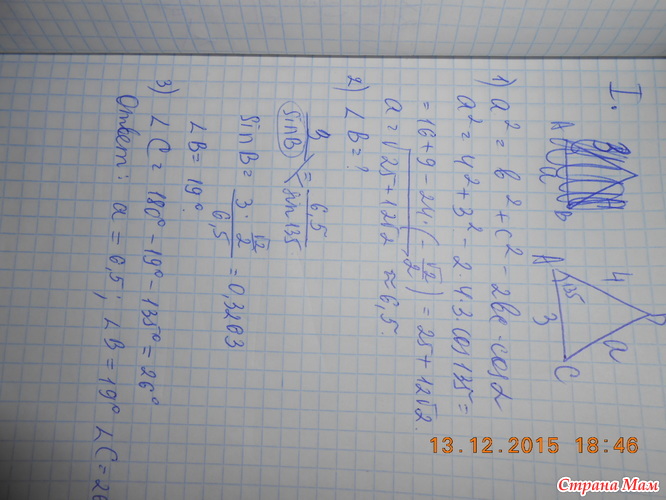 I.
A
4
B
135
3
a
C
1) a² = b² + c² - 2bc · cos α
a² = 4² + 3² - 2·4·3·cos 135° =
= 16 + 9 - 24·(-√2/2) = 25 + 12√2.
a = √25 + 12√2 ≈ 6,5.
2) ∠B = ?
3/sin B = 6,5/sin 135
sin B = 3·√2/2 / 6,5 = 0,3263
∠B = 19°.
3) ∠C = 180° - 19° - 135° = 26°
Ответ: a = 6,5; ∠B = 19° ∠C = 26
13.12.2015 18:46
Страна Мам